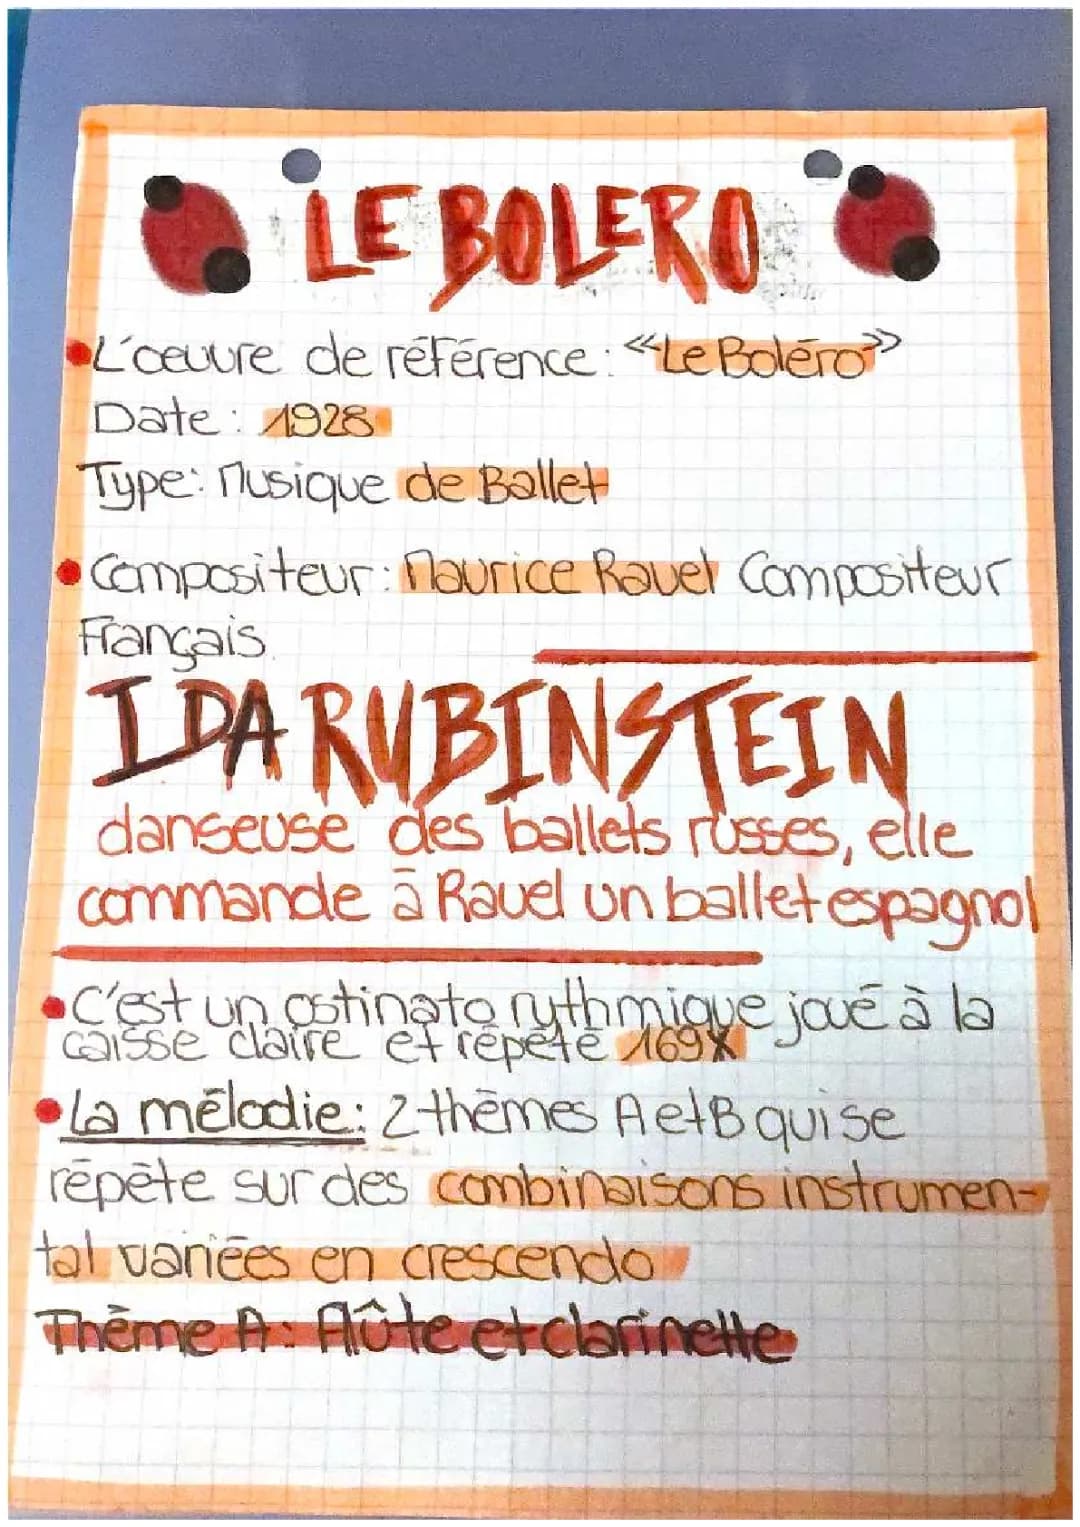 LE BOLERO
L'œuvre de référence: «Le Boléro»
Date: 1928
Type: Musique de Ballet
Compositeur: Maurice Ravel Compositeur
Français
IDA RUBINSTEIN
danseuse des ballets russes, elle
commande à Ravel un ballet espagnol
C'est un ostinato rythmique joué à la
caisse claire et répété 169X
La mélodie: 2 thèmes A et B qui se
répète sur des combinaisons instrumen-
tal variées en crescendo
Thème A: Flûte et clarinette